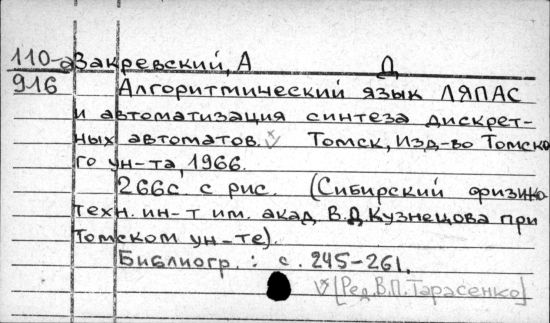 110-а Закревский, А Д
916 Алгоритмический язык ЛЯПАС
и автоматизация синтеза дискрет-
ных автоматов. Томск, Изд-во Томско
го ун-та, 1966.
266с. с рис. (Сибирский физико-
техн. ин-т им. акад. В.Д.Кузнецова при
Томском ун-те).
Библиогр.: с. 245-261.
[Ред. В.П. Тарасенко]